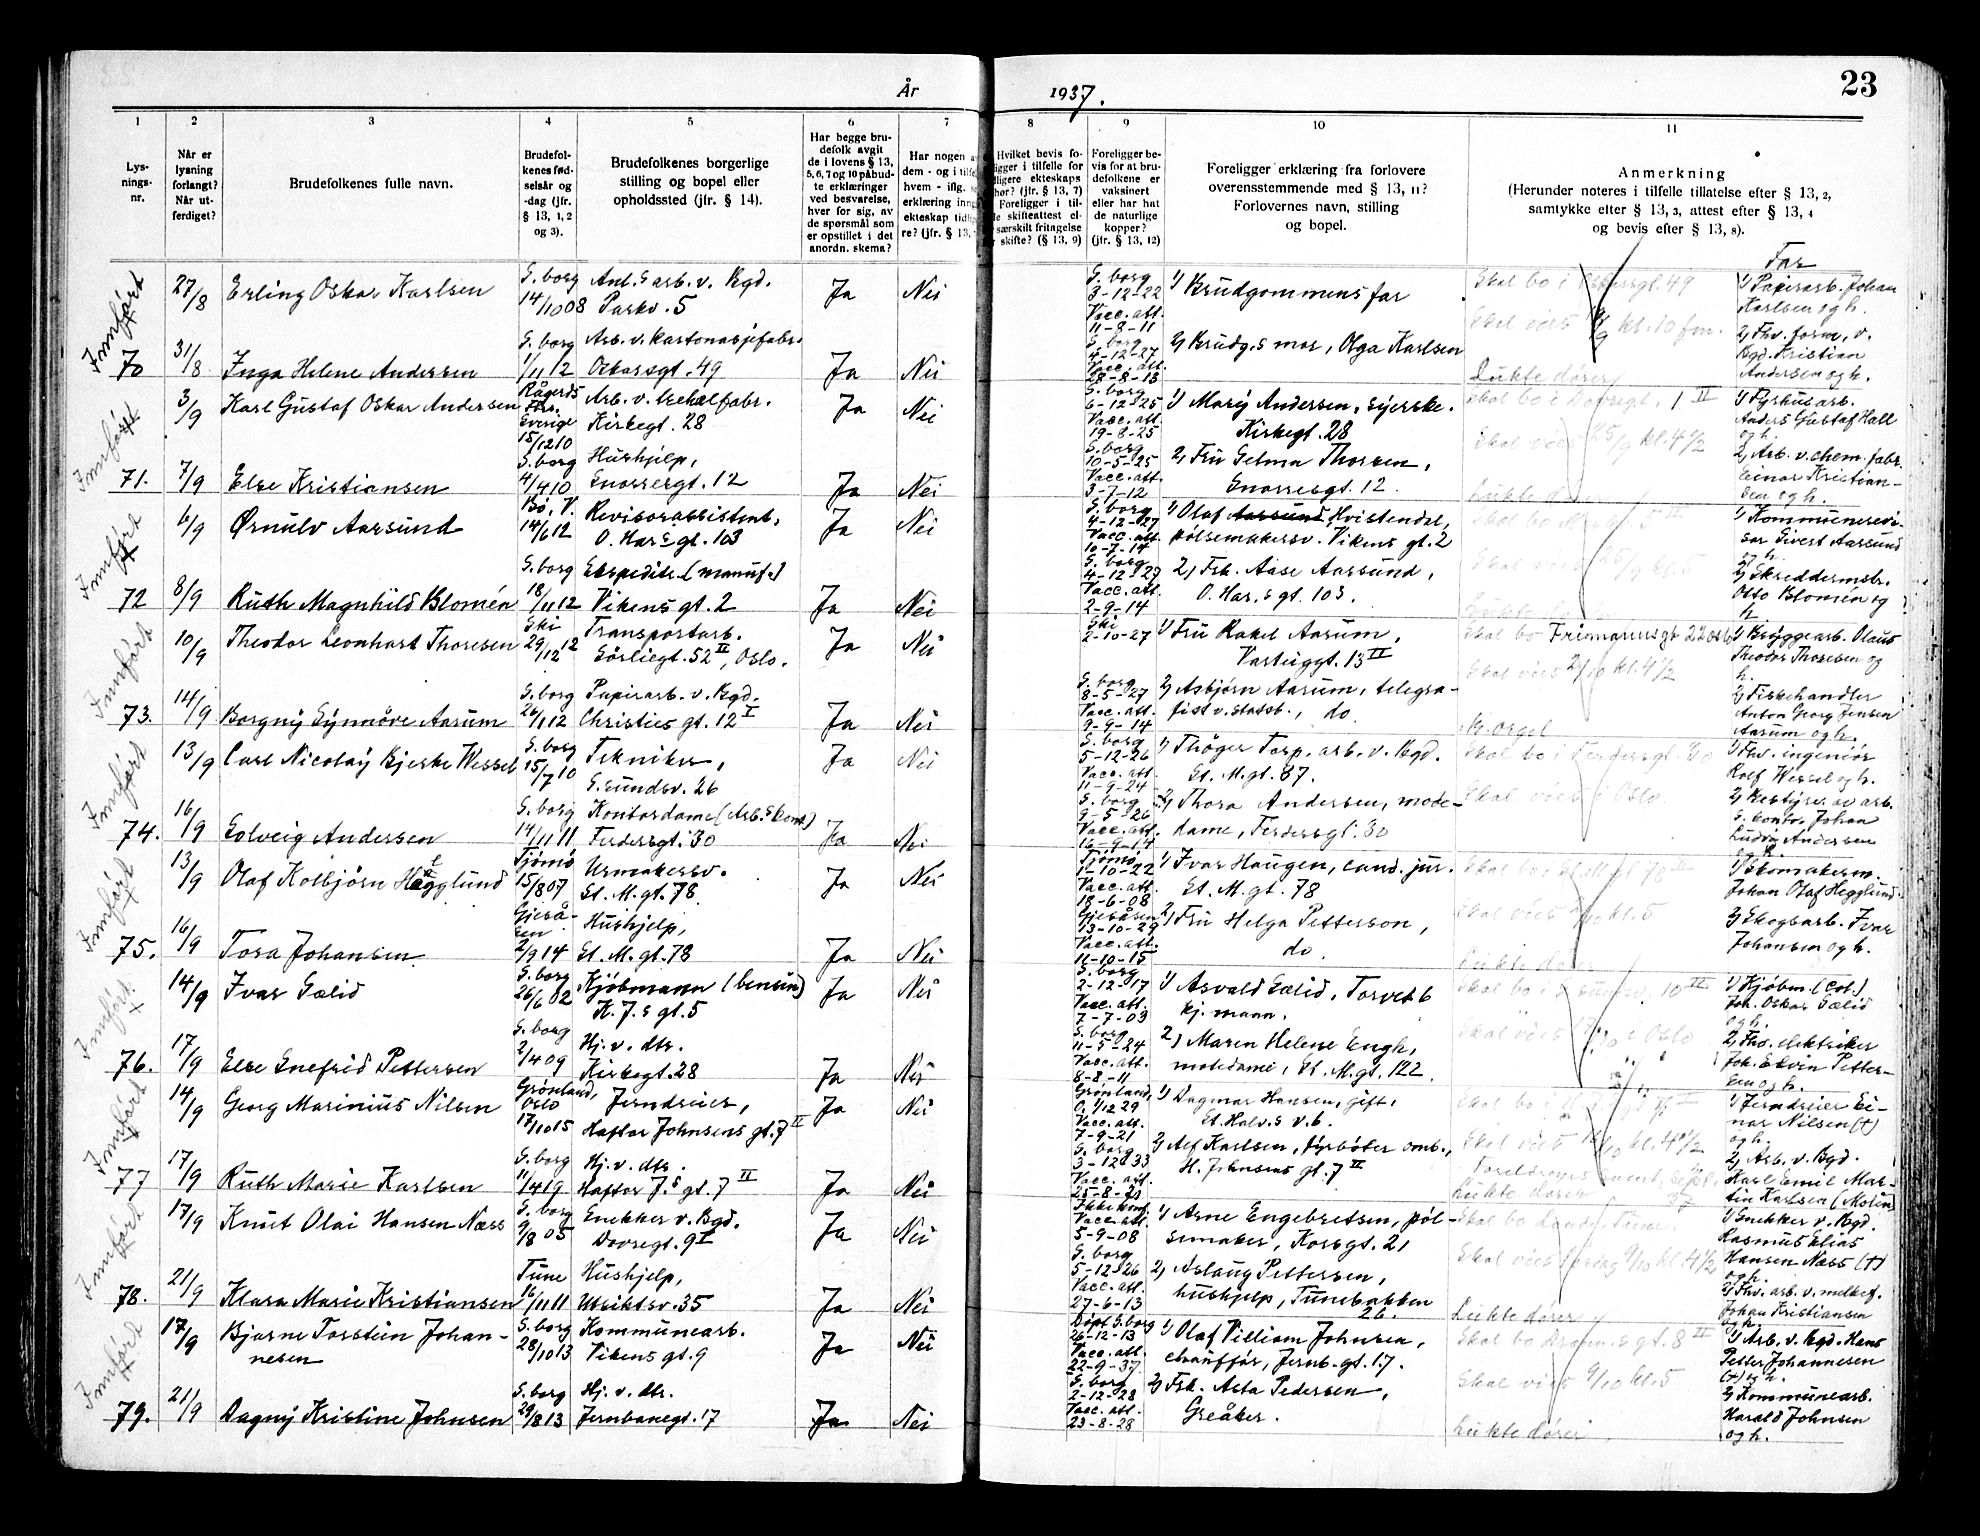 År 1937.
23
1 2 3 4 5 6 7 8 9 10 11
Lys-
nings-
nr.
Når er
lysning
forlangt?
Når ut-
ferdiget?
Brudefolkenes fulle navn.
Brudefol-
kenes fød-
selsår og
-dag (jfr.
§ 13, 1, 2
og 3).
Brudefolkenes borgerlige
stilling og bopel eller
opholdssted (jfr. § 14).
Har begge bru-
defolk avgit
de i lovens § 13,
5, 6, 7 og 10 påbud-
te erklæringer
ved besvarelse,
hver for sig, av
de spørsmål som
er opstillet i det
anordn. skema?
Har nogen a
dem - og i tilfe
hvem - iflg.
erklæring inng
ekteskap tidlig
re? (jfr. § 13,
Hvilket bevis fo-
ligger i tilfelle for
dligere ekteskaps
hør? (jfr. § 13, 7)
Foreligger i til-
le skifteattest el-
særskilt fritagelse
skifte? (§ 13, 9)
Foreligger be-
vis for at bru-
defolkene er
vaksinert
eller har hat
de naturlige
kopper?
(jfr. § 13, 12)
Foreligger erklæring fra forlovere
overensstemmende med § 13, 11?
Forlovernes navn, stilling
og bopel.
Anmerkning
(Herunder noteres i tilfelle tillatelse efter § 13, 2,
samtykke efter § 13, 3, attest efter § 13, 4
og bevis efter § 13, 8).
Far
Innført
27/8 Erling Oskar Karlsen
S. borg
14/10 08
Anl.s arb. v. Bgd.
Parkv. 5
Ja Nei
S. borg
3-12-22
Vacc. att.
11-8-11
1) Brudgommens far
Skal bo i Oskarsgt. 49
1) Papirarb. Johan
Karlsen og h.
70 31/8 Inga Helene Andersen
S. borg
1/11 12
Arb. v. kartonasjefabr.
Oskarsgt. 49
Ja Nei
S. borg
4-12-27
Vacc. att.
28-8-13
2) Brudg.s mor, Olga Karlsen
Lukte dører
2) Fhv. form. v.
Bgd. Kristian
Andersen og h.
Innført
3/9 Karl Gustaf Oskar Andersen
Sverige
15/12 10
Arb. v. hehælfabr.
Kirkegt. 28
Ja Nei
S. borg
6-12-25
Vacc. att.
19-8-25
1) Mary Andersen, syerske.
Kirkegt. 28
Skal bo i Dovregt. 1 II
Skal vies 25/9 kl. 4 1/2
1) Fyrhusarb.
Anders Gustaf Hall
og h.
71. 7/9 Else Kristiansen
S. borg
4/4 10
Hushjelp,
Snorresgt. 12
Ja Nei
S. borg
10-5-25
Vacc. att.
3-7-12
2) Fru Selma Thorsen,
Snorresgt. 12.
2) Arb. v. chem. fabr.
Einar Kristian-
sen og h.
Innført
6/9 Ørnulv Aarsund
Bö, V.
14/6 12
Revisorassistent,
O. Har.s gt. 103
Ja Nei
S. borg
4-12-27
Vacc. att.
10-7-14
1) Olaf Aarsund Hvistendal,
pölsemakersv. Vikens gt. 2
1) Kommunerevi-
sor Sivert Aarsund
og h.
72 8/9 Ruth Magnhild Blomén
S. borg
18/11 12
Ekspeditr. (manuf.)
Vikens gt. 2
Ja Nei
S. borg
4-12-27
Vacc. att.
2-9-14
2) Frk. Aase Aarsund,
O. Har.s gt. 103.
2) Skreddermstr.
Otto Blomén og
h.
Innført
10/9 Theodor Leonhart Thoresen
Ski
29/12 12
Transportarb.
Sörligt. 52 II, Oslo.
Ja Nei
Ski
2-10-27
1) Fru Rakel Aarum,
Varteiggt. 13 II
Skal bo Frimannsgt 22 Oslo
Skal vies 2/10 kl. 4 1/2
1) Bryggearb. Olaus
Theodor Thoresen og
h.
73. 14/9 Borgny Synnöve Aarum
S. borg
26/1 12
Papirarb. v. Bgd.
Christies gt. 12 I
Ja Nei
S. borg
8-5-27
Vacc. att.
9-9-14
2) Asbjörn Aarum, telegra-
fist v. statsb., do
M. orgel
2) Fiskehandler
Anton Georg Jensen
Aarum og h.
Innført
13/9 Carl Nicolay Bjerke Wessel
S. borg
15/7 10
Tekniker,
G. sundsv. 26
Ja Nei
S. borg
5-12-26
Vacc. att.
11-9-24
1) Thöger Torp, arb. v. Bgd.
St. M. gt. 87.
Skal bo i Ferdersgt. 30
Skal vies i Oslo.
1) Fhv. ingeniör
Rolf Wessel og h.
74. 16/9 Solveig Andersen
S. borg
14/11 11
Kontordame (Arb.s kont.)
Ferdersgt. 30
Ja Nei
S. borg
9-5-26
Vacc. att.
16-9-14
2) Thora Andersen, mote-
dame, Ferdersgt. 30
2) Bestyrer av arb.
s. kontor Johan
Ludvig Andersen
og h.
Innført
13/9 Olaf Kolbjörn Hegglund
Tjömö
15/8 07
Urmakersv.
St. M. gt. 78
Ja Nei
Tjömö
1-10-22
Vacc. att.
18-6-08
1) Ivar Haugen, cand. jur.
St. M. gt. 78
1) Skomakerm.
Johan Olaf Hegglund.
75. 16/9 Tora Johansen
Gjeså-
sen
2/9 14
Hushjelp,
St. M. gt. 78
Ja Nei
Gjesåsen
13-10-29
Vacc. att.
11-10-15
2) Fru Helga Petterson,
do.
Lukte dører
2) Skogsarb. Ivar
Johansen og h.
Innført.
14/9 Ivar Sælid
S. borg
26/6 02
Kjöbmann (bensin)
K. J. s gt. 5
Ja Nei
S. borg
2-12-17
Vacc. att.
7-7-03
1) Asvald Sælid, Torvet 6
kj. mann.
1) Kjöbm. (Col.)
Joh. Oskar Sælid
og h.
76. 17/9 Else Snefrid Pettersen
S. borg
2/4 09
Hj. v. dtr.
Kirkegt. 28
Ja Nei
S. borg
11-5-24
Vacc. att.
8-8-11
2) Maren Helene Engh,
motedame, St. M. gt. 122
2) Fhv. elektriker
Joh. Edvin Petter-
sen og h.
Innført
14/9 Georg Marinius Nilsen
Grønland,
Oslo
17/10 15
Jerndreier,
Haftor Johnsens gt. 7 II
Ja Nei
Grønland,
O. 1/12 29
Vacc. att.
7-9-21
1) Dagmar Hansen, gift,
St. Halv.s v. 6.
1) Jerndreier Ei-
nar Nilsen (+)
og h.
77 17/9 Ruth Marie Karlsen
S. borg
11/4 19
Hj. v. dtr.
Haftor J.s gt. 7 II
Ja Nei
S. borg
3-12-33
Vacc. att.
25-8-21
2) Alf Karlsen, fyrböter omb.,
H. Johnsens gt. 7 II
Lukte dører
2) Arb. v. Bgd.
Karl Emil Mar-
tin Karlsen (Molin)
Innført
17/9 Knut Olai Hansen Næss
S. borg
9/8 05
Snekker v. Bgd.
Dovregt. 9 I
Ja Nei
Ikke konf.
Vacc. att.
5-9-08
1) Arne Engebretsen, pöl-
semaker, Korsgt. 21
1) Snekker v. Bgd.
Rasmus Elias
Hansen Næss (+)
og h.
78. 21/9 Klara Marie Kristiansen
Tune
16/11 11
Hushjelp,
Utsiktsv. 35
Ja Nei
S. borg
5-12-26
Vacc. att.
27-6-13
2) Aslaug Pettersen,
hushjelp, Tunebakken
26.
Lukte dører
2) Fhv. arb. v. melkef.
Johan Kristiansen
og h.
Innført
17/9 Bjarne Torstein Johan-
nesen
S. borg
28/10 13
Kommunearb.
Vikens gt. 9
Ja Nei
Döpt S. borg
26-12-13
Vacc. att.
22-9-37
1) Olaf Villiam Johnsen,
chaufför, Jernb. gt. 17.
Skal bo Dronn.s gt. 8 II
Skal vies 9/10 kl. 5
1) Arb. v. Bgd. Hans
Petter Johannesen
(+) og h.
79. 21/9 Dagny Kristine Johnsen
S. borg
29/8 13
Hj. v. dtr.
Jernbanegt. 17
Ja Nei
S. borg
2-12-28
Vacc. att.
23-8-28
2) Frk. Asta Pedersen,
Greåker.
Lukte dører
2) Kommunearb.
Harald Johnsen
og h.